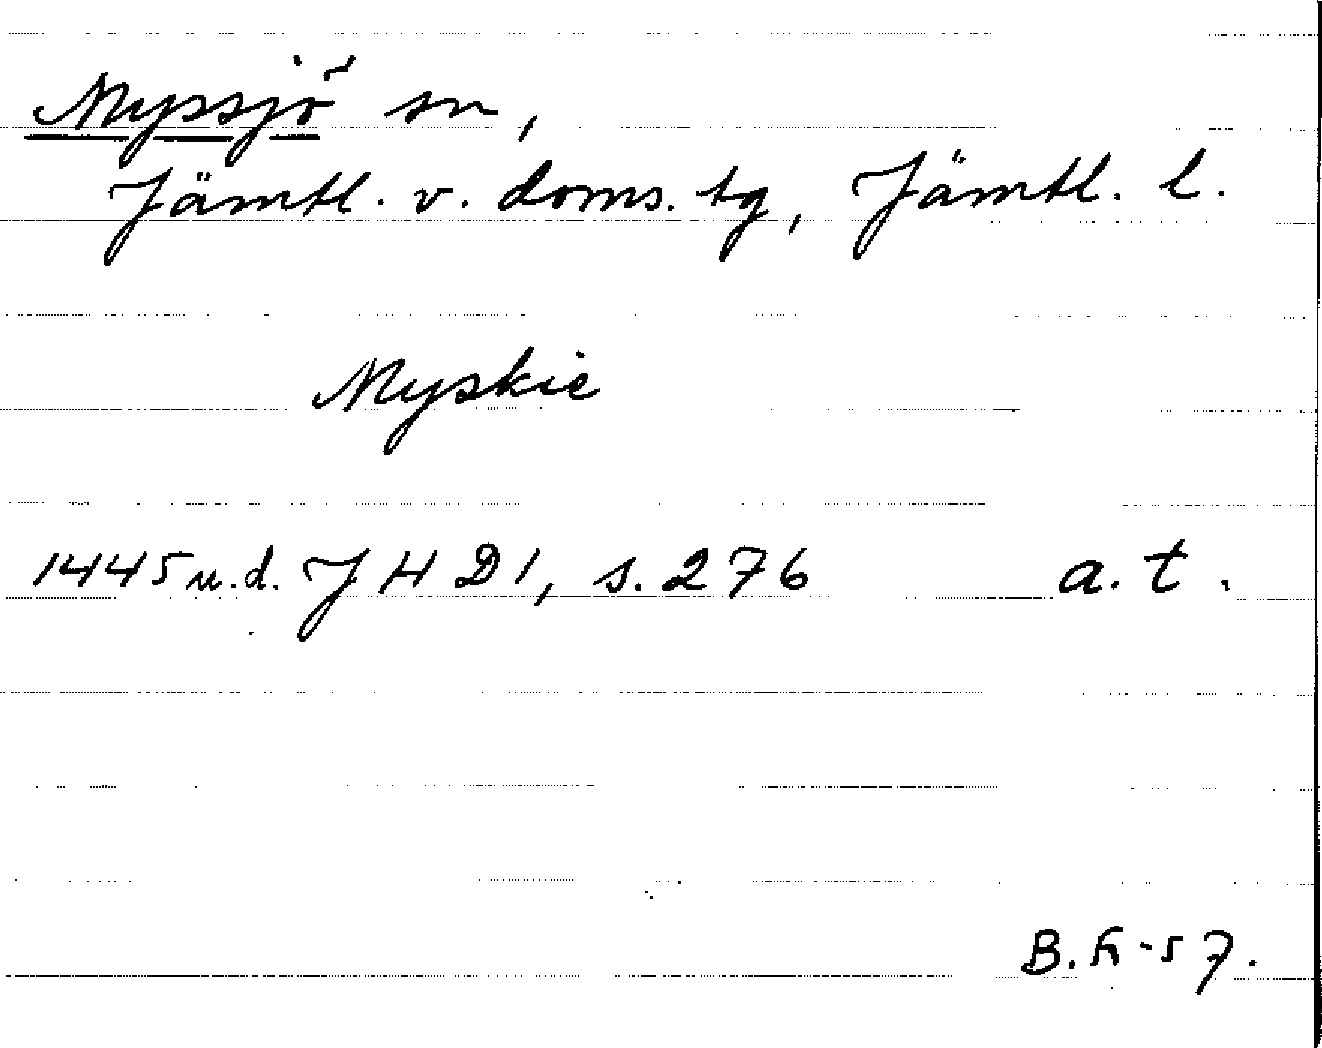 Myssjö sn,
Jämtl. v. doms. tg, Jämtl. l.
Myskie
1445 u.d. J H D 1, s. 276 a. t.
B. K-57.